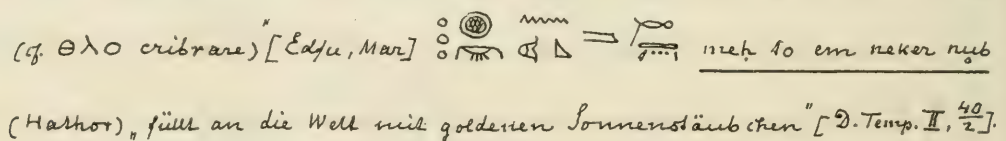 (cf. ϴλο cribrare)" [Edfu, Mar] = meḥ to em neker nub
(Hathor) „füllt an die Welt mit goldenen Sonnenstäubchen" [D. Temp. II, 40/2].